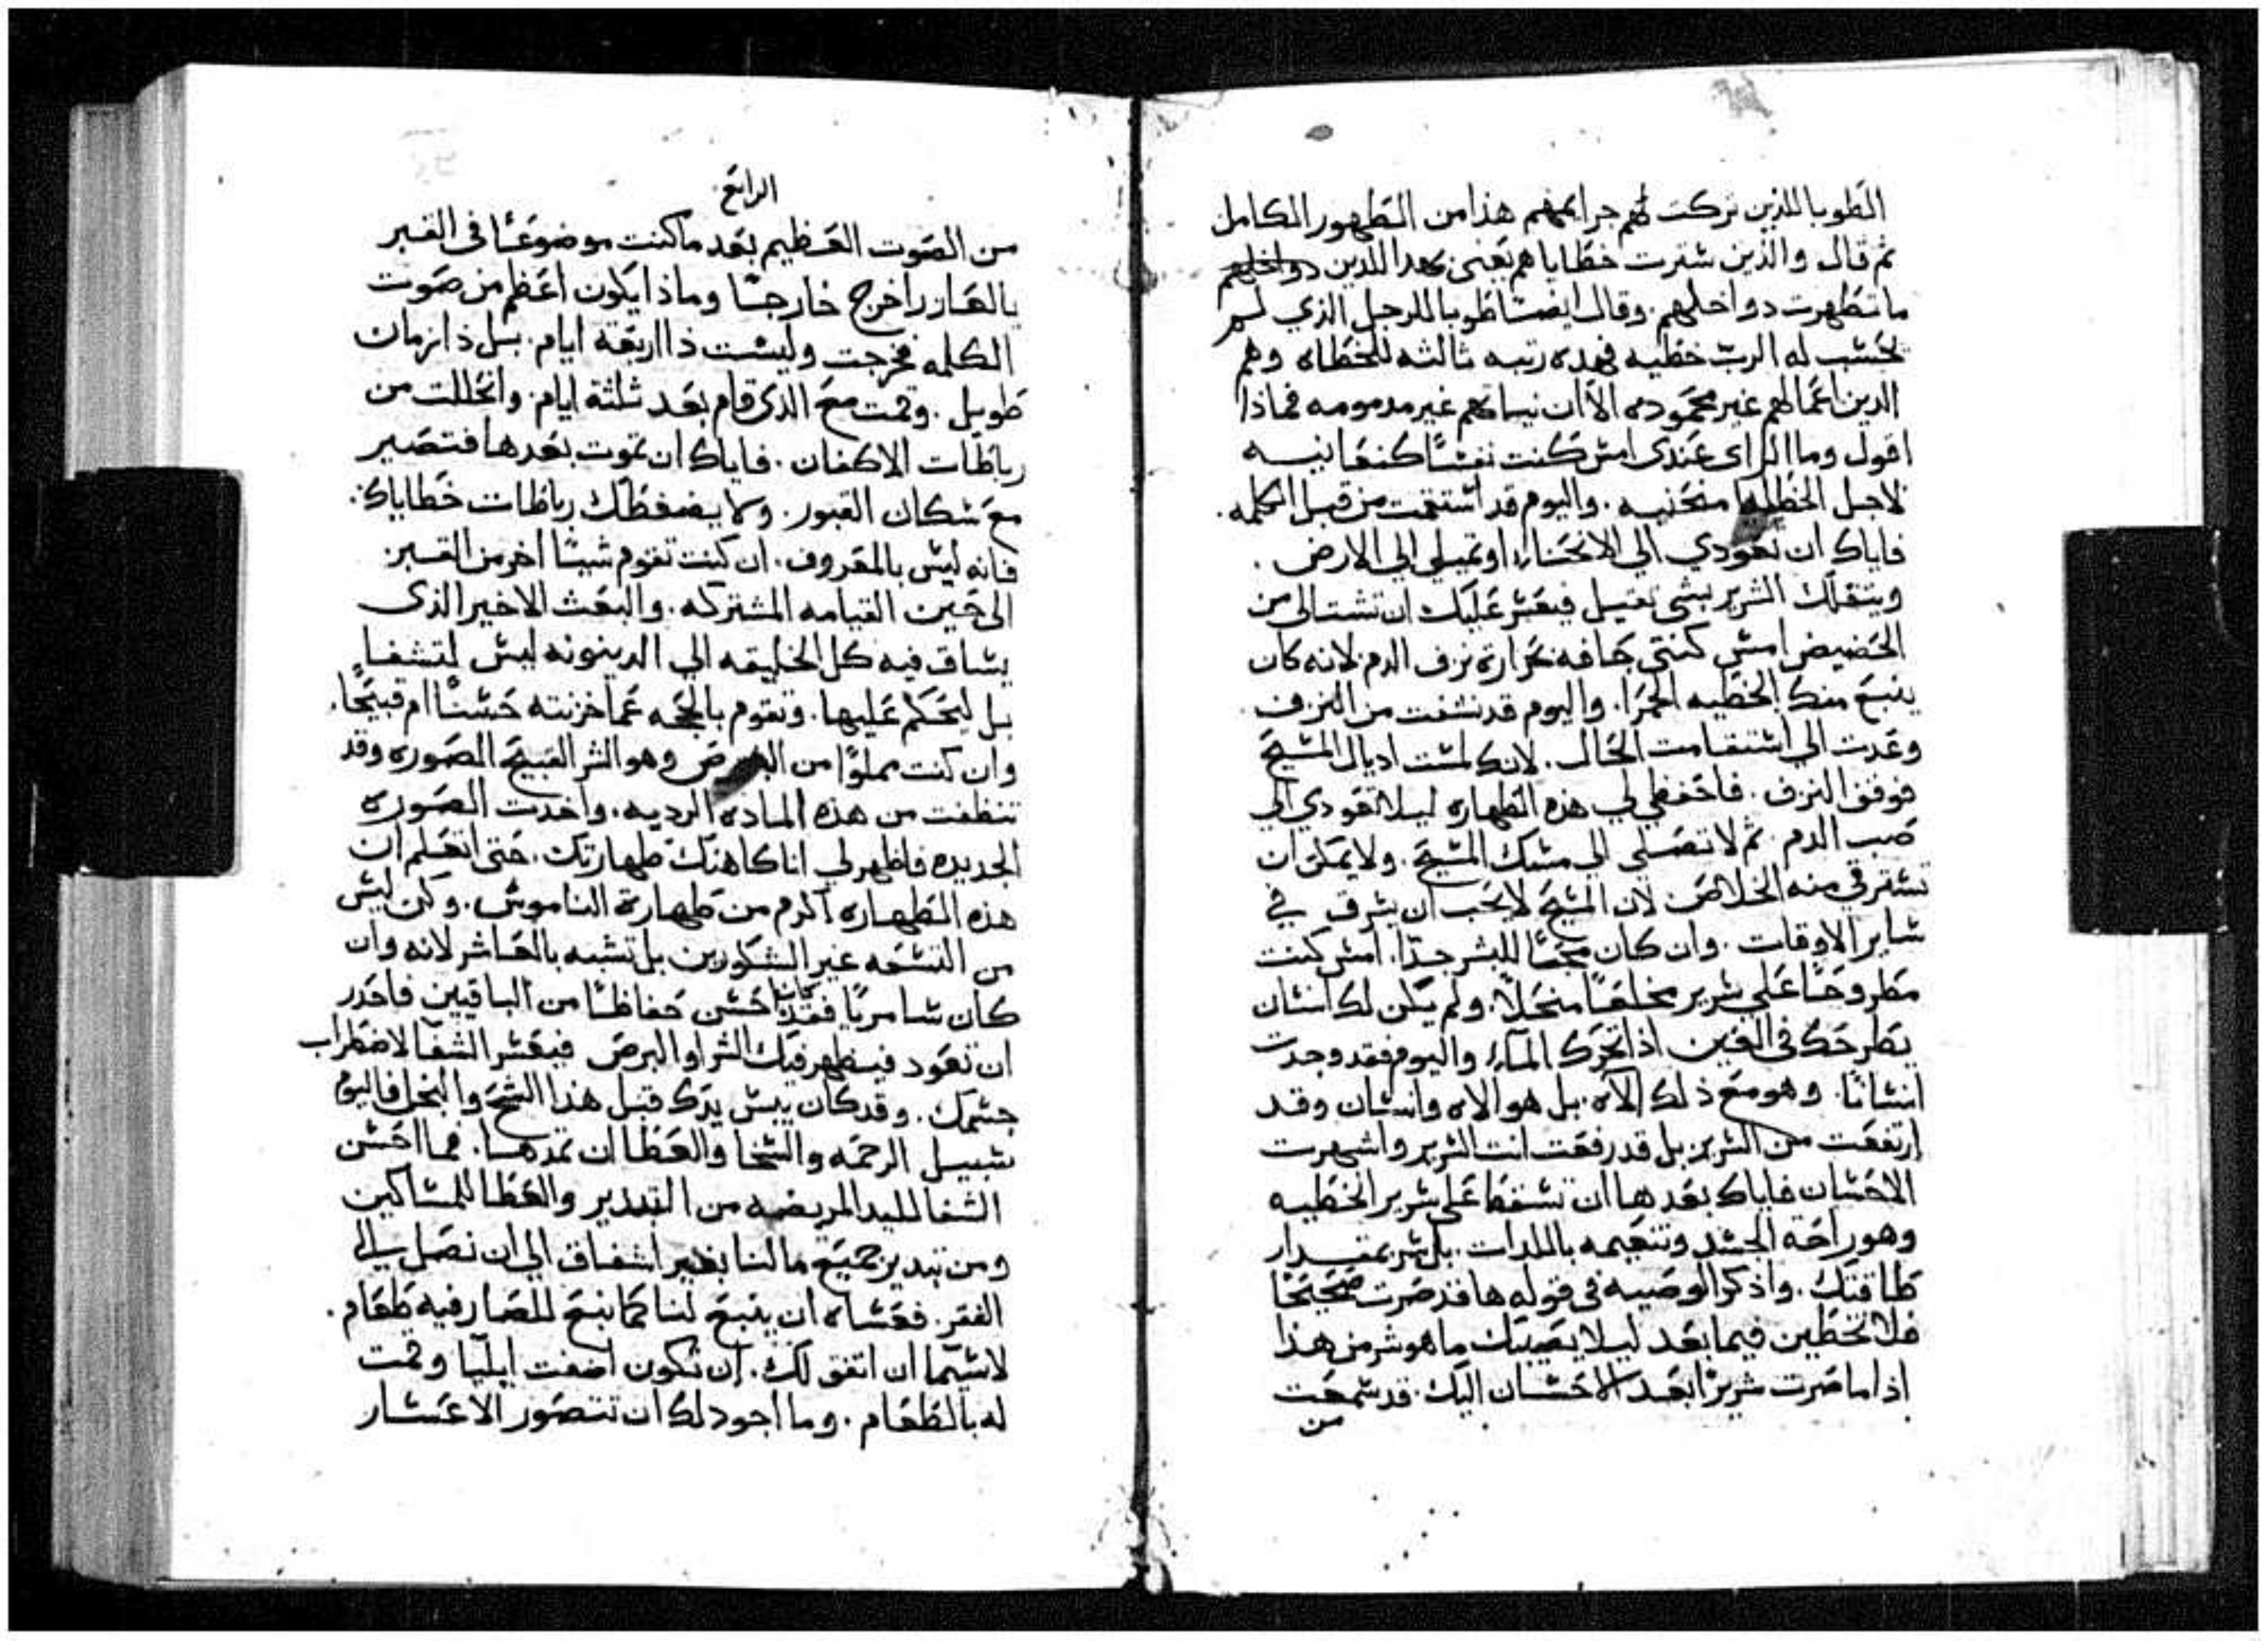 الطوبا للذين تركت لهم جرايمهم هذا من التطهور الكامل
ثم قال والذين سترت خطاياهم يعنى بهدا اللذين دواخلهم
ما تطهرت دواخلهم. وقال ايضًا طوبا للرجل الذي لم
يحسب له الرب خطيه فهده رتبه ثالثه للخطاه وهم
الدين اعمالهم غير محموده الا ان نيساتهم غير مدمومه فماذا
اقول وما الراى عندى امس كنت نفسًا كنعانيه
لاجل الخطيه منحنيه. واليوم قد استقمت من قبل الكلمه.
فاياك ان تعودي الى الانحناء او تميلي الي الارض.
ويتقلك الشرير بشى تقيل فيعسر عليك ان تشتالى من
الحضيض امس كنتى جافه بحرارة نزف الدم لانه كان
ينبع منك الخطيه الحمرا. واليوم قد نشفت من النزف.
وعدت الي استقامت الحال. لانك لمست اديال المسيح
فوقف النزف. فاحفظي لي هذه الطهاره ليلا تعودي الي
صب الدم. ثم لا تصلي الي مسك المسيح. ولا يمكن ان
تسترقي منه الخلاص لان المسيح لا يحب ان يسرق في
ساير الاوقات. وان كان محبًا للبشر جدًا. امس كنت
مطروحًا على سرير مخلعًا منحلًا. ولم يكن لك انسان
يطرحك فى العين اذا تحرك الماء واليوم فقد وجدت
انسانًا. وهو مع ذلك الاه. بل هو الاه وانسان وقد
ارتفعت من السرير بل قد رفعت انت السرير واشهرت
الاحسان فاياك بعدها ان تسقط على سرير الخطيه
وهو راحة الجسد وتنعيمه بالملدات. بل سر بمقدار
طاقتك. واذكر الوصيه فى قوله ها قد صرت صحيحًا
فلا تخطين فيما بعد ليلا يصيبك ما هو شر من هذا
اذا ما صرت شريرًا بعد الاحسان اليك. قد سمعت
من
الرابع
من الصوت العظيم بعد ما كنت موضوعًا فى القبر
يالعازر اخرج خارجًا وماذا يكون اعظم من صوت
الكلمه فخرجت وليست ذا اربعة ايام. بل ذا زمان
طويل. وقمت مع الذى قام بعد ثلثة ايام. وانحللت من
رباطات الاكفان. فاياك ان تموت بعدها فتصير
مع سكان القبور. ولا يضغطك رباطات خطاياك.
فانه ليس بالمعروف. ان كنت تقوم شيئًا اخر من القبر
الى حين القيامه المشتركه. والبعث الاخير الذى
يساق فيه كل الخليقه الي الدينونه ليس لتشفا
بل ليحكم عليها. وتقوم بالحجه عما خزنته حسنًا ام قبيحًا.
وان كنت مملوًا من البرص وهو الشر القبيح الصوره وقد
تنظفت من هذه الماده الرديه. واخدت الصوره
الجديده فاظهر لي انا كاهنك طهارتك. حتى اتعلم ان
هذه الطهاره اكرم من طهارة الناموس. وكن ليس
من التسعه غير الشكورين بل تشبه بالعاشر لانه وان
كان سامريًا فقد كان احسن حفاظًا من الباقيين فاحدر
ان تعود فيظهر فيك الشر او البرص فيعسر الشفا لاضطراب
جسمك. وقد كان يبس يدك قبل هذا الشح والبخل فاليوم
سبيل الرحمه والسخا والعطا ان تمدها. فما احسن
الشفا لليد المريضه من التبدير والعطا للمساكين
ومن تبدير جميع مالنا بغير اشفاق الي ان نصل الي
الفقر. فعساه ان ينبع لنا كما نبع للصارفيه طعام.
لاسيما ان اتفق لك. ان تكون اضفت ايليا وقمت
له بالطعام. وما اجود لك ان تتصور الاعسار